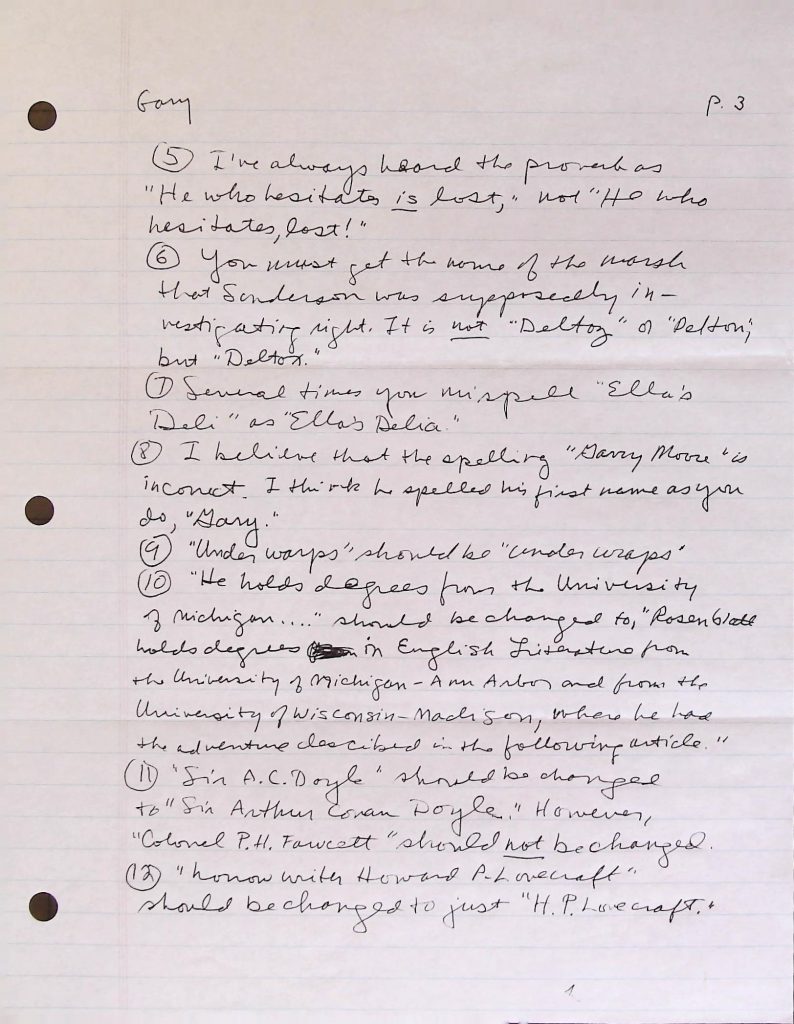 Gary P. 3
⑤ I've always heard the proverb as
"He who hesitates is lost," not "He who
hesitates, lost!"
⑥ You must get the name of the marsh
that Sanderson was supposedly in-
vestigating right. It is not "Deltoz" or "Delton,"
but "Deltox."
⑦ Several times you mispell "Ella's
Deli" as "Ella's Delia."
⑧ I believe that the spelling "Garry Moore" is
incorrect. I think he spelled his first name as you
do, "Gary."
⑨ "Under warps" should be "under wraps"
⑩ "He holds degrees from the University
of Michigan...." should be changed to, "Rosenblatt
holds degrees in English Literature from
the University of Michigan-Ann Arbor and from the
University of Wisconsin-Madison, where he had
the adventure described in the following article."
⑪ "Sir A.C. Doyle" should be changed
to "Sir Arthur Conan Doyle." However,
"Colonel P.H. Fawcett" should not be changed.
⑫ "horror writer Howard P. Lovecraft"
should be changed to just "H.P. Lovecraft."